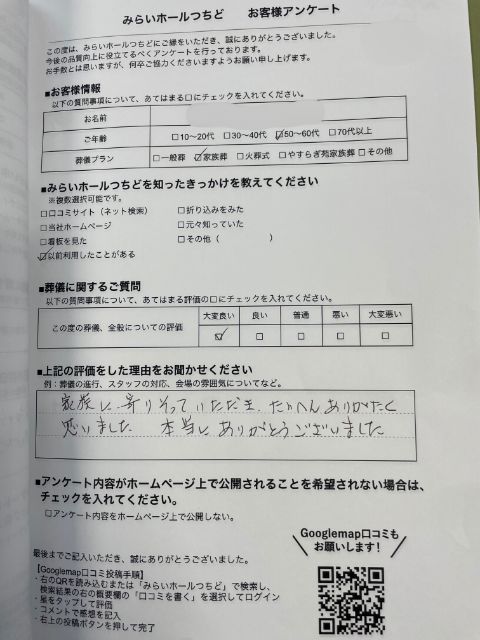 みらいホールつちど　お客様アンケート
この度は、みらいホールつちどにご縁をいただき、誠にありがとうございました。
今後の品質向上に役立てるべくアンケートを行っております。
お手数とは思いますが、何卒ご協力くださいますようお願い申し上げます。
■お客様情報
以下の質問事項について、あてはまる口にチェックを入れてください。
お名前
ご年齢 □10～20代 □30～40代 ☑50～60代 □70代以上
葬儀プラン □一般葬 ☑家族葬 □火葬式 □やすらぎ苑家族葬 □その他
■みらいホールつちどを知ったきっかけを教えてください
※複数選択可能です。
□口コミサイト（ネット検索） □折り込みをみた
□当社ホームページ □元々知っていた
□看板を見た □その他（　　　　　）
☑以前利用したことがある
■葬儀に関するご質問
以下の質問事項について、あてはまる評価の口にチェックを入れてください。
大変良い 良い 普通 悪い 大変悪い
この度の葬儀、全般についての評価 ☑ □ □ □ □
■上記の評価をした理由をお聞かせください
例：葬儀の進行、スタッフの対応、会場の雰囲気についてなど。
家族に寄りそっていただき、たいへんありがたく
思いました　本当にありがとうございました
■アンケート内容がホームページ上で公開されることを希望されない場合は、
チェックを入れてください。
□アンケート内容をホームページ上で公開しない。
Googlemap口コミも
お願いします！
最後までご記入いただき、誠にありがとうございました。
【Googlemap口コミ投稿手順】
・右のQRを読み込むまたは「みらいホールつちど」で検索し、
検索結果の右の概要欄の「口コミを書く」を選択してログイン
・星をタップして評価
・コメントで感想を記入
・右上の投稿ボタンを押して完了